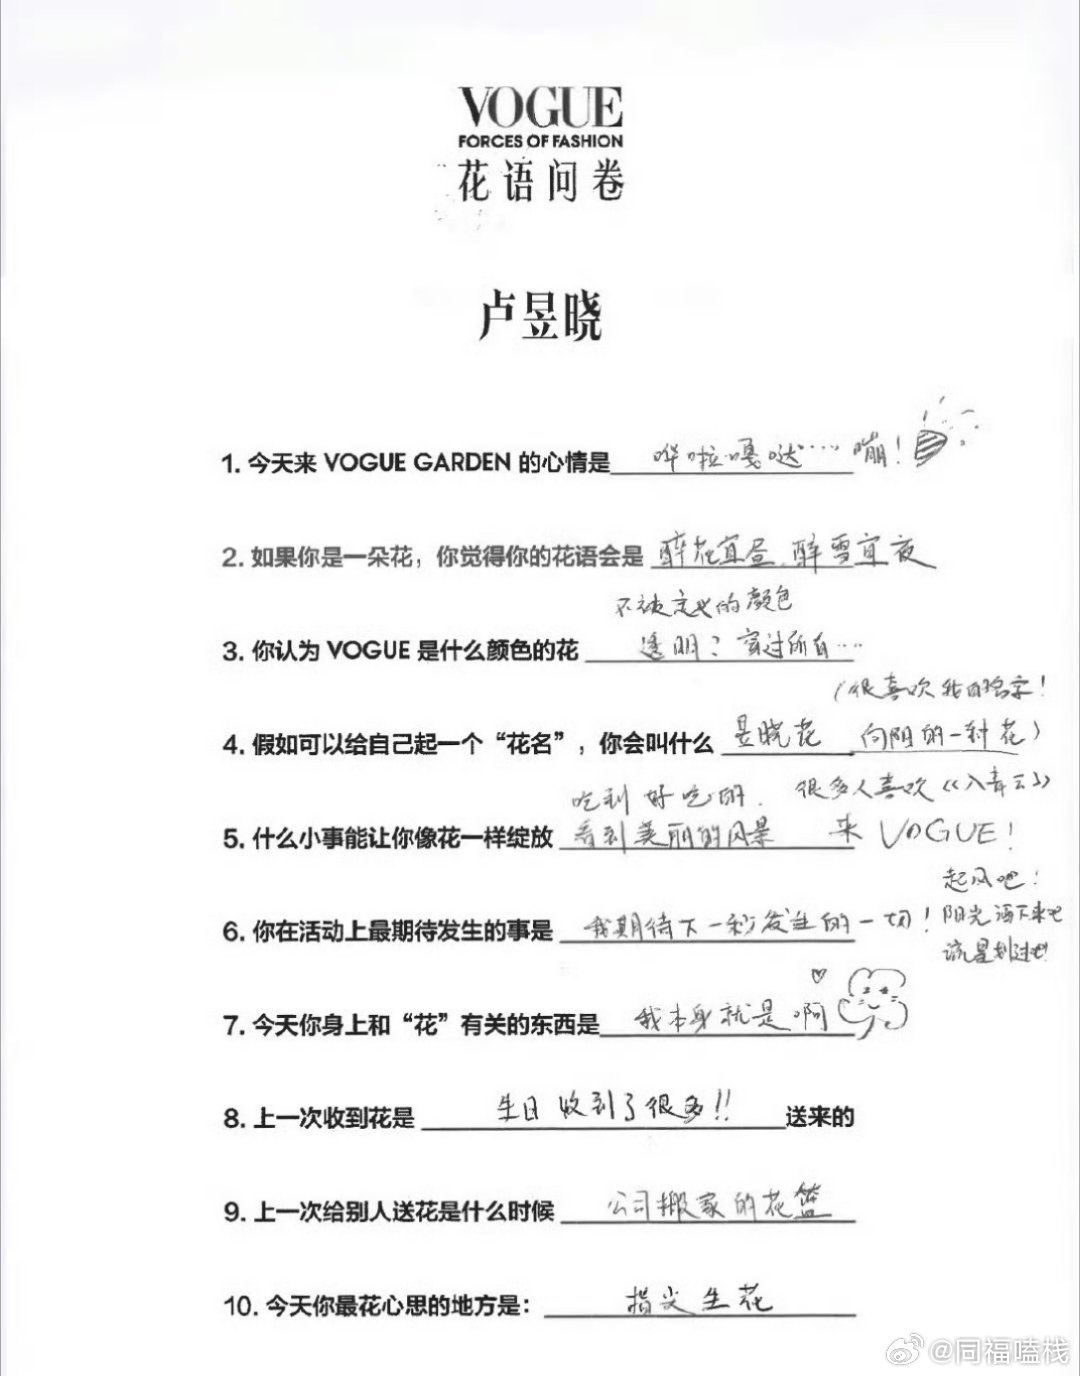 VOGUE
FORCES OF FASHION
花语问卷
卢昱晓
1. 今天来 VOGUE GARDEN 的心情是 哗啦嘎哒…… 嘣！
2. 如果你是一朵花，你觉得你的花语会是 醉花宜昼、醉雪宜夜
不被定义的颜色
3. 你认为 VOGUE 是什么颜色的花 透明？穿过所有…
（很喜欢我的名字！
4. 假如可以给自己起一个“花名”，你会叫什么 昱晓花 向阳的一种花）
吃到好吃的. 很多人喜欢《入青云》
5. 什么小事能让你像花一样绽放 看到美丽的风景 来 VOGUE！
起风吧！
6. 你在活动上最期待发生的事是 我期待下一秒发生的一切！阳光洒下来吧
流星划过吧!
7. 今天你身上和“花”有关的东西是 我本身就是啊
8. 上一次收到花是 生日收到了很多!! 送来的
9. 上一次给别人送花是什么时候 公司搬家的花篮
10. 今天你最花心思的地方是: 指尖生花
@同福嗑栈